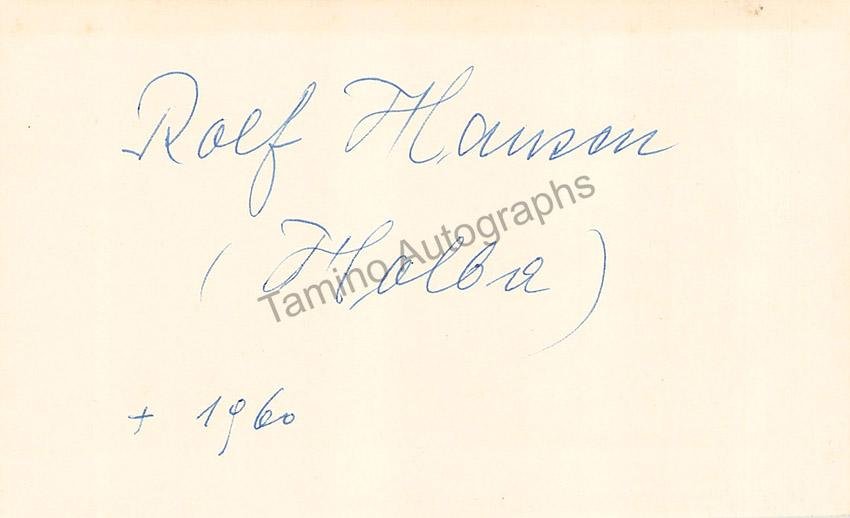 Rolf Hansen
(Holba)
Tamino Autographs
+ 1960